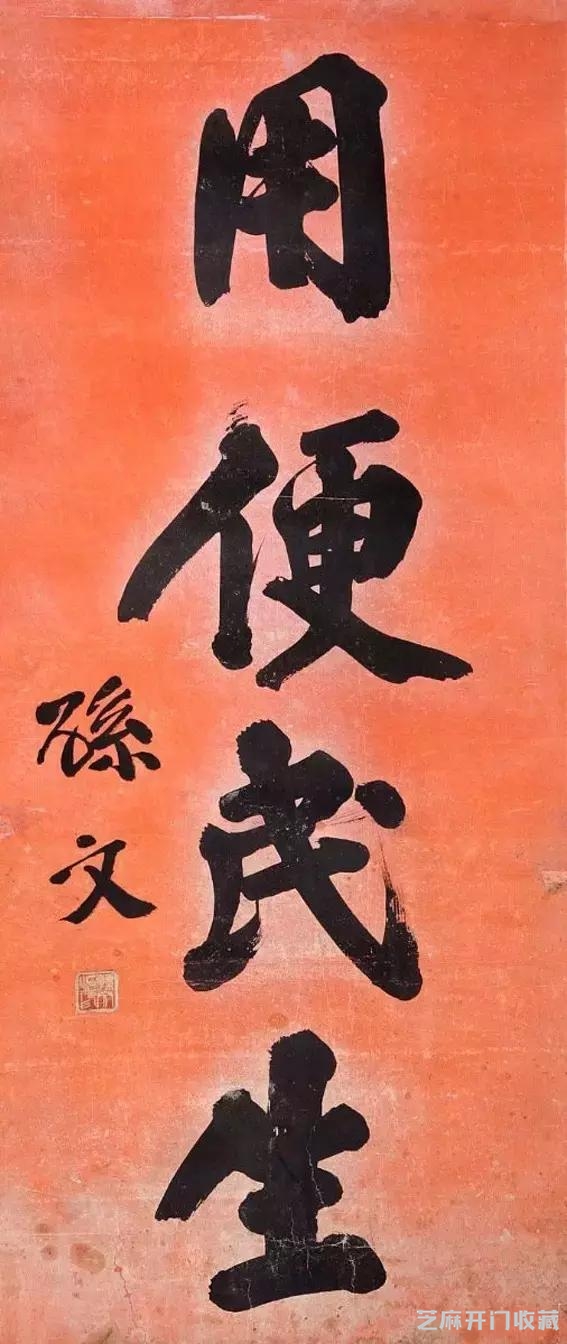 用便民生
孫文
芝麻开门收藏